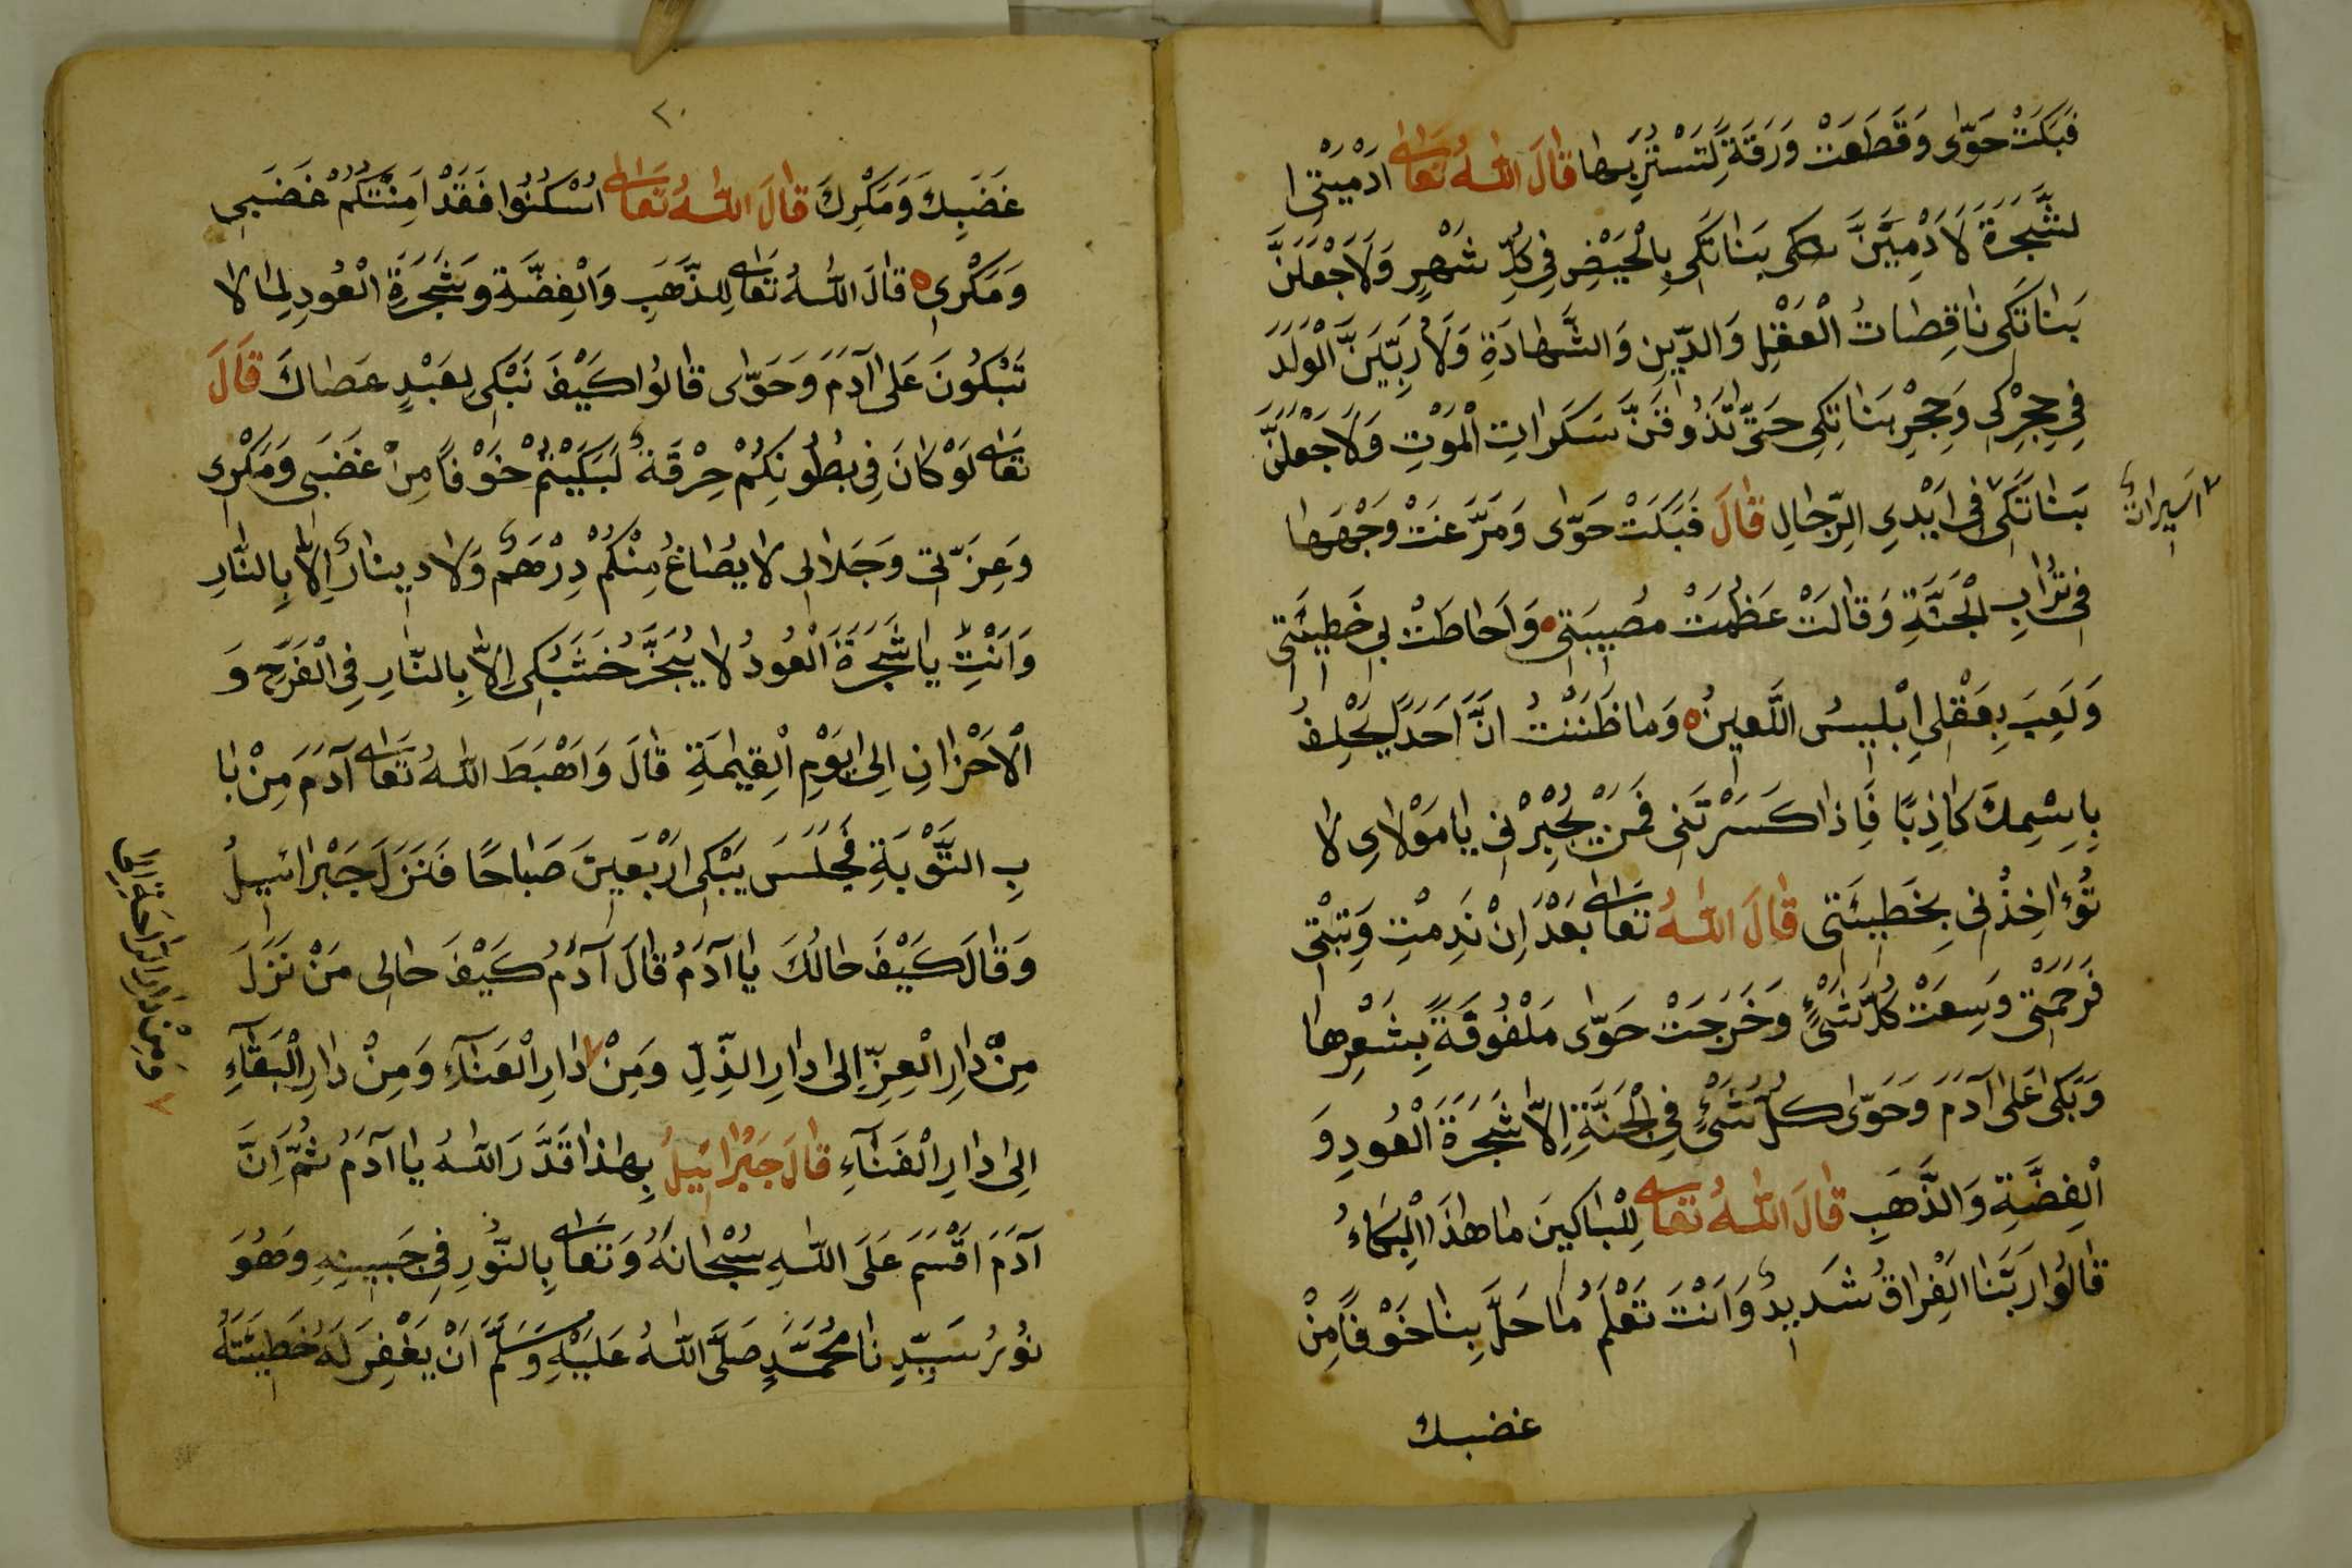 فَبَكَتْ حَوّٰى وَقَطَعَتْ وَرَقَةً لِتَسْتَتِرَ بِهَا قَالَ اللّٰهُ تَعَالٰى اَدْمَيْتِى ا
لشَّجَرَةَ لَاُدْمِيَنَّكِى بَنَاتَكِى بِالْحَيْضِ فِى كُلِّ شَهْرٍ وَلَاَجْعَلَنَّ
بَنَاتَكِى نَاقِصَاتُ الْعَقْلِ وَالدِّينِ وَالشَّهَادَةِ وَلَاُرَبِّيَنَّ الْوَلَدَ
فِى حِجْرِكِى وَحِجْرِ بَنَاتِكِى حَتّٰى تَذُوقَنَّ سَكَرَاتِ الْمَوْتِ وَلَاَجْعَلَنَّ
بَنَاتَكِى فِى اَيْدِى الرِّجَالِ قَالَ فَبَكَتْ حَوّٰى وَمَرَّغَتْ وَجْهَهَا
اَسِيرَاتٌ
فِى تُرَابِ الْجَنَّةِ وَقَالَتْ عَظُمَتْ مُصِيبَتِى وَاَحَاطَتْ بِى خَطِيئَتِى
وَلَعِبَ بِعَقْلِى اِبْلِيسُ اللَّعِينُ وَمَا ظَنَنْتُ اَنَّ اَحَدً يَحْلِفُ
بِاِسْمِكَ كَاذِبًا فَاِذَا كَسَرْتَنِى فَمَنْ يُجْبِرْنِى يَا مَوْلَاىِ لَا
تُؤَاخِذْنِى بِخَطِيئَتِى قَالَ اللّٰهُ تَعَالٰى بَعْدَ اِنْ نَدِمْتِ وَتُبْتِى
فَرَحْمَتِى وَسِعَتْ كُلَّ شَىْءٍ وَخَرَجَتْ حَوّٰى مَلْفُوفَةً بِشَعْرِهَا
وَبَكٰى عَلٰى آدَمَ وَحَوّٰى كُلُّ شَىْءٍ فِى الْجَنَّةِ اِلَّا شَجَرَةَ الْعُودِ وَ
الْفِضَّةِ وَالذَّهَبِ قَالَ اللّٰهُ تَعَالٰى لِلْبَاكِينَ مَا هٰذَا الْبُكَاءُ
قَالُوا رَبَّنَا الْفِرَاقُ شَدِيدٌ وَاَنْتَ تَعْلَمُ مَا حَلَّ بِنَا خَوْفًا مِنْ
غضبك
٢٠
غَضَبِكَ وَمَكْرِكَ قَالَ اللّٰهُ تَعَالٰى اُسْكُنُوا فَقَدْ اَمِنْتُكُمْ غَضَبِى
وَمَكْرِى قَالَ اللّٰهُ تَعَالٰى لِلذَّهَبِ وَالْفِضَّةِ وَشَجَرَةِ الْعُودِ لِمَا لَا
تَبْكُونَ عَلٰى آدَمَ وَحَوّٰى قَالُوا كَيْفَ نَبْكِى لِعَبْدٍ عَصَاكَ قَالَ
تَعَالٰى لَوْ كَانَ فِى بُطُونِكُمْ حِرْقَةٌ لَبَكَيْتُمْ خَوْفًا مِنْ غَضَبِى وَمَكْرِى
وَعِزَّتِى وَجَلَالِى لَا يُصَاغُ مِنْكُمْ دِرْهَمٌ وَلَا دِينَارٌ اِلَّا بِالنَّارِ
وَاَنْتِ يَا شَجَرَةَ الْعُودُ لَا يُبَخَّرُ خَشَبُكِى اِلَّا بِالنَّارِ فِى الْفَرَحِ وَ
الْاَحْزَانِ اِلٰى يَوْمِ الْقِيٰمَةِ قَالَ وَاَهْبَطَ اللّٰهُ تَعَالٰى آدَمَ مِنْ بَا
بِ التَّوْبَةِ فَجَلَسَ يَبْكِى اَرْبَعِينَ صَبَاحًا فَنَزَلَ جَبْرَائِيلُ
وَقَالَ كَيْفَ حَالُكَ يَا آدَمُ قَالَ آدَمُ كَيْفَ حَالِى مَنْ نَزَلَ
مِنْ دَارِ الْعِزِّ اِلٰى دَارِ الذِّلِّ وَمِنْ دَارِ الْعَنَآءِ وَمِنْ دَارِ الْبَقَآءِ
وَمِنْ دَارِ الرَّاحَةِ اِلٰى
اِلٰى دَارِ الْفَنَآءِ قَالَ جَبْرَائِيلُ بِهٰذَا قَدَّرَ اللّٰهُ يَا آدَمُ ثُمَّ اَنَّ
آدَمَ اَقْسَمَ عَلَى اللّٰهِ سُبْحَانَهُ وَتَعَالٰى بِالنُّورِ فِى جَبِينِهِ وَهُوَ
نُورُ سَيِّدِنَا مُحَمَّدٍ صَلَّى اللّٰهُ عَلَيْهِ وَسَلَّمَ اَنْ يَغْفِرَ لَهُ خَطِيئَتَهُ